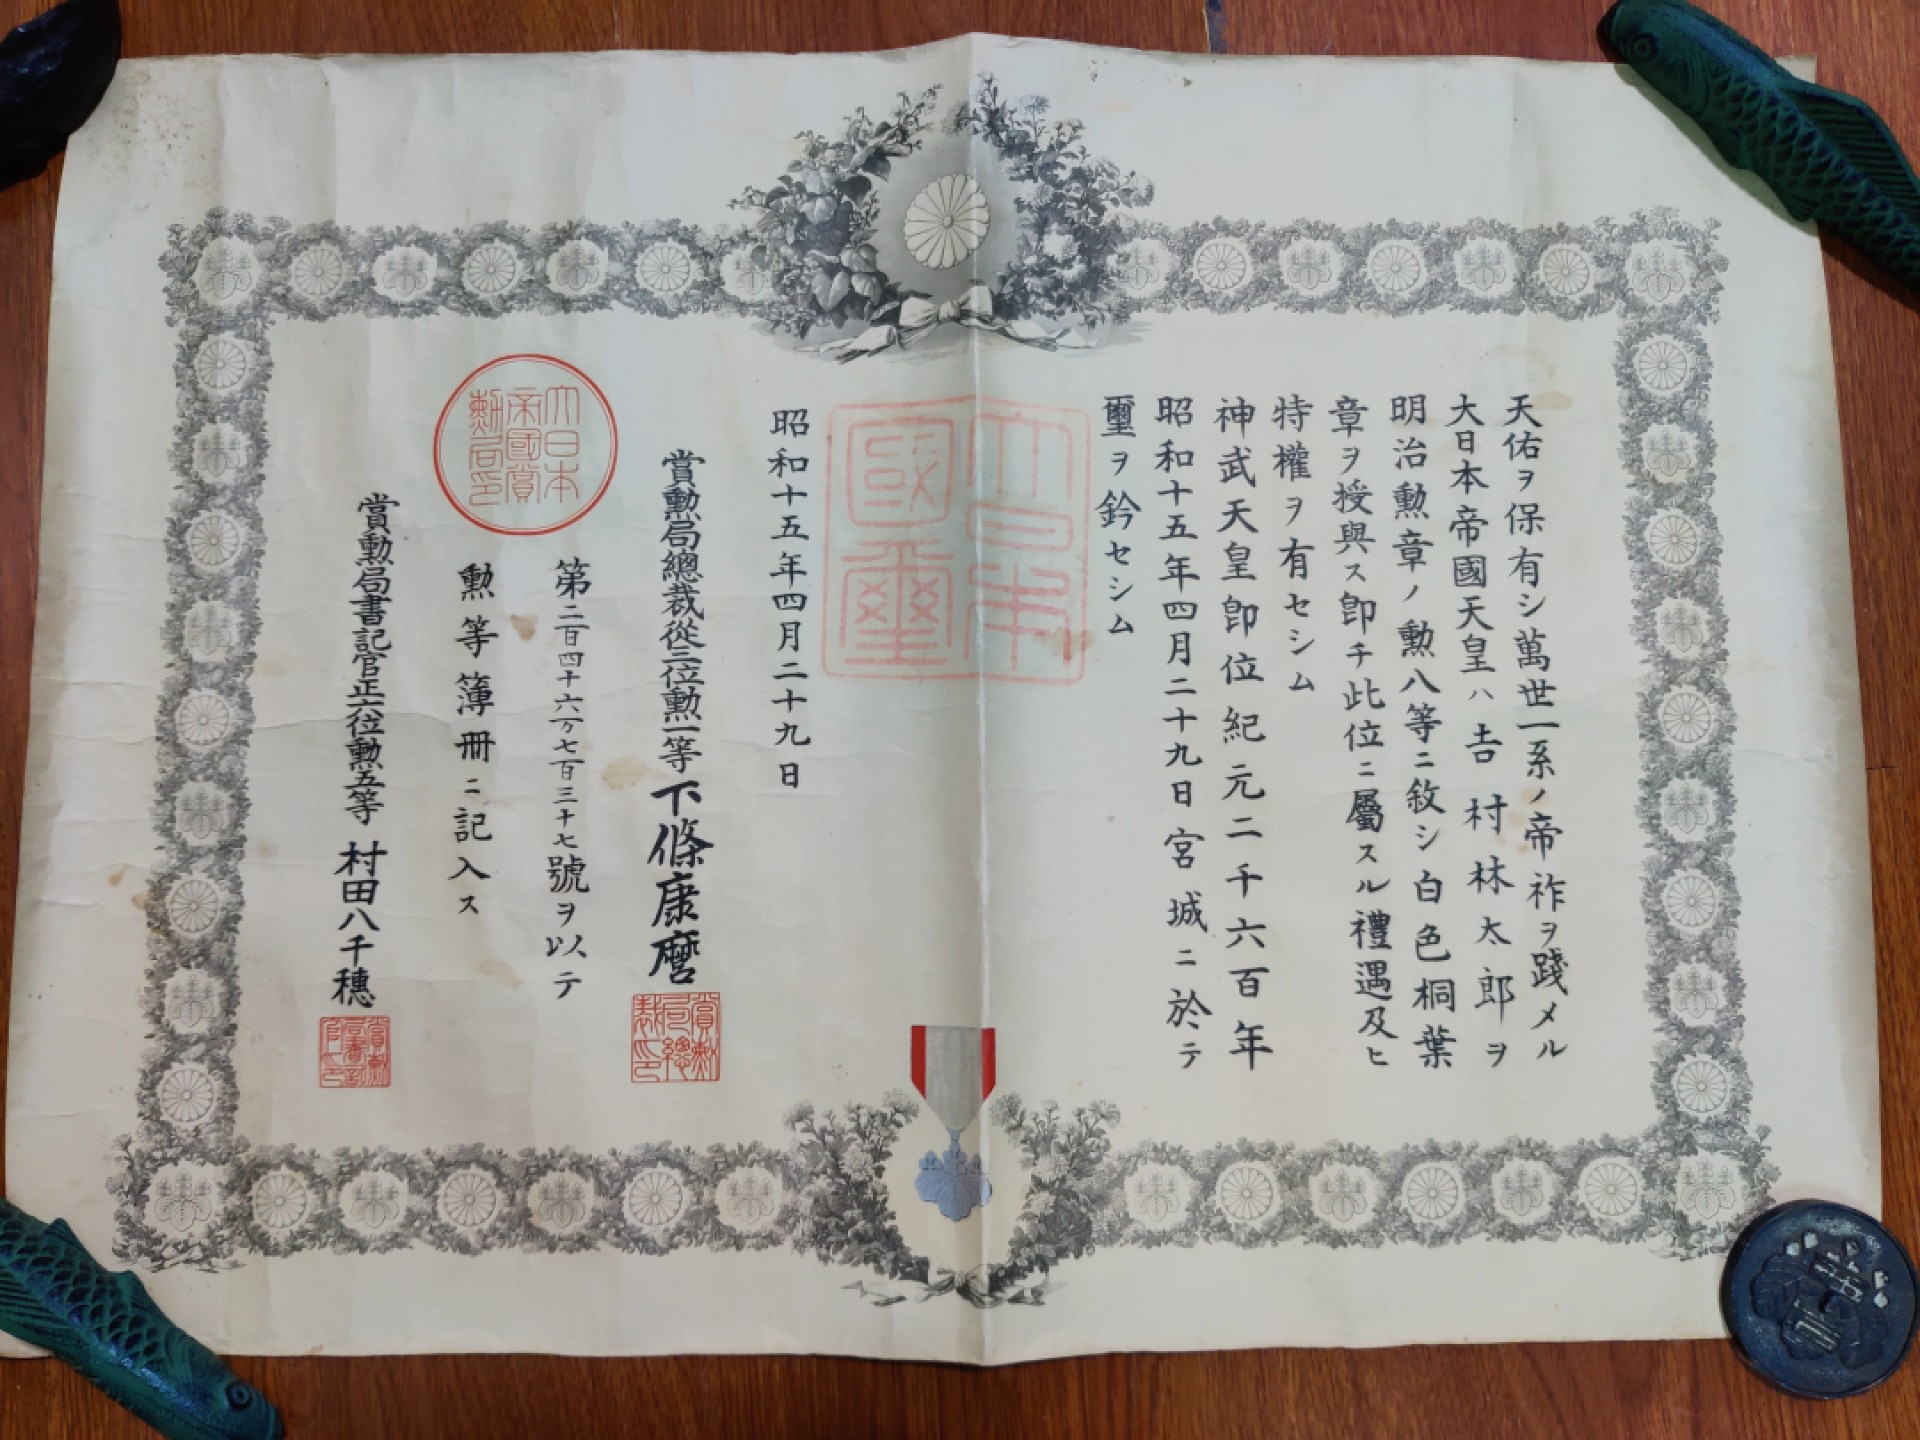 天佑ヲ保有シ萬世一系ノ帝祚ヲ踐メル
大日本帝國天皇ハ吉村林太郎ヲ
明治勲章ノ勲八等ニ敘シ白色桐葉
章ヲ授與ス卽チ此位ニ屬スル禮遇及ヒ
特權ヲ有セシム
神武天皇卽位紀元二千六百年
昭和十五年四月二十九日宮城ニ於テ
璽ヲ鈐セシム
大日本
國璽
昭和十五年四月二十九日
賞勲局總裁從三位勲一等下條康麿
賞勲局總裁印
第二百四十六万七百三十七號ヲ以テ
勲等簿冊ニ記入ス
大日本帝國賞勲局印
賞勲局書記官正六位勲五等村田八千穗
賞勲局書記官印